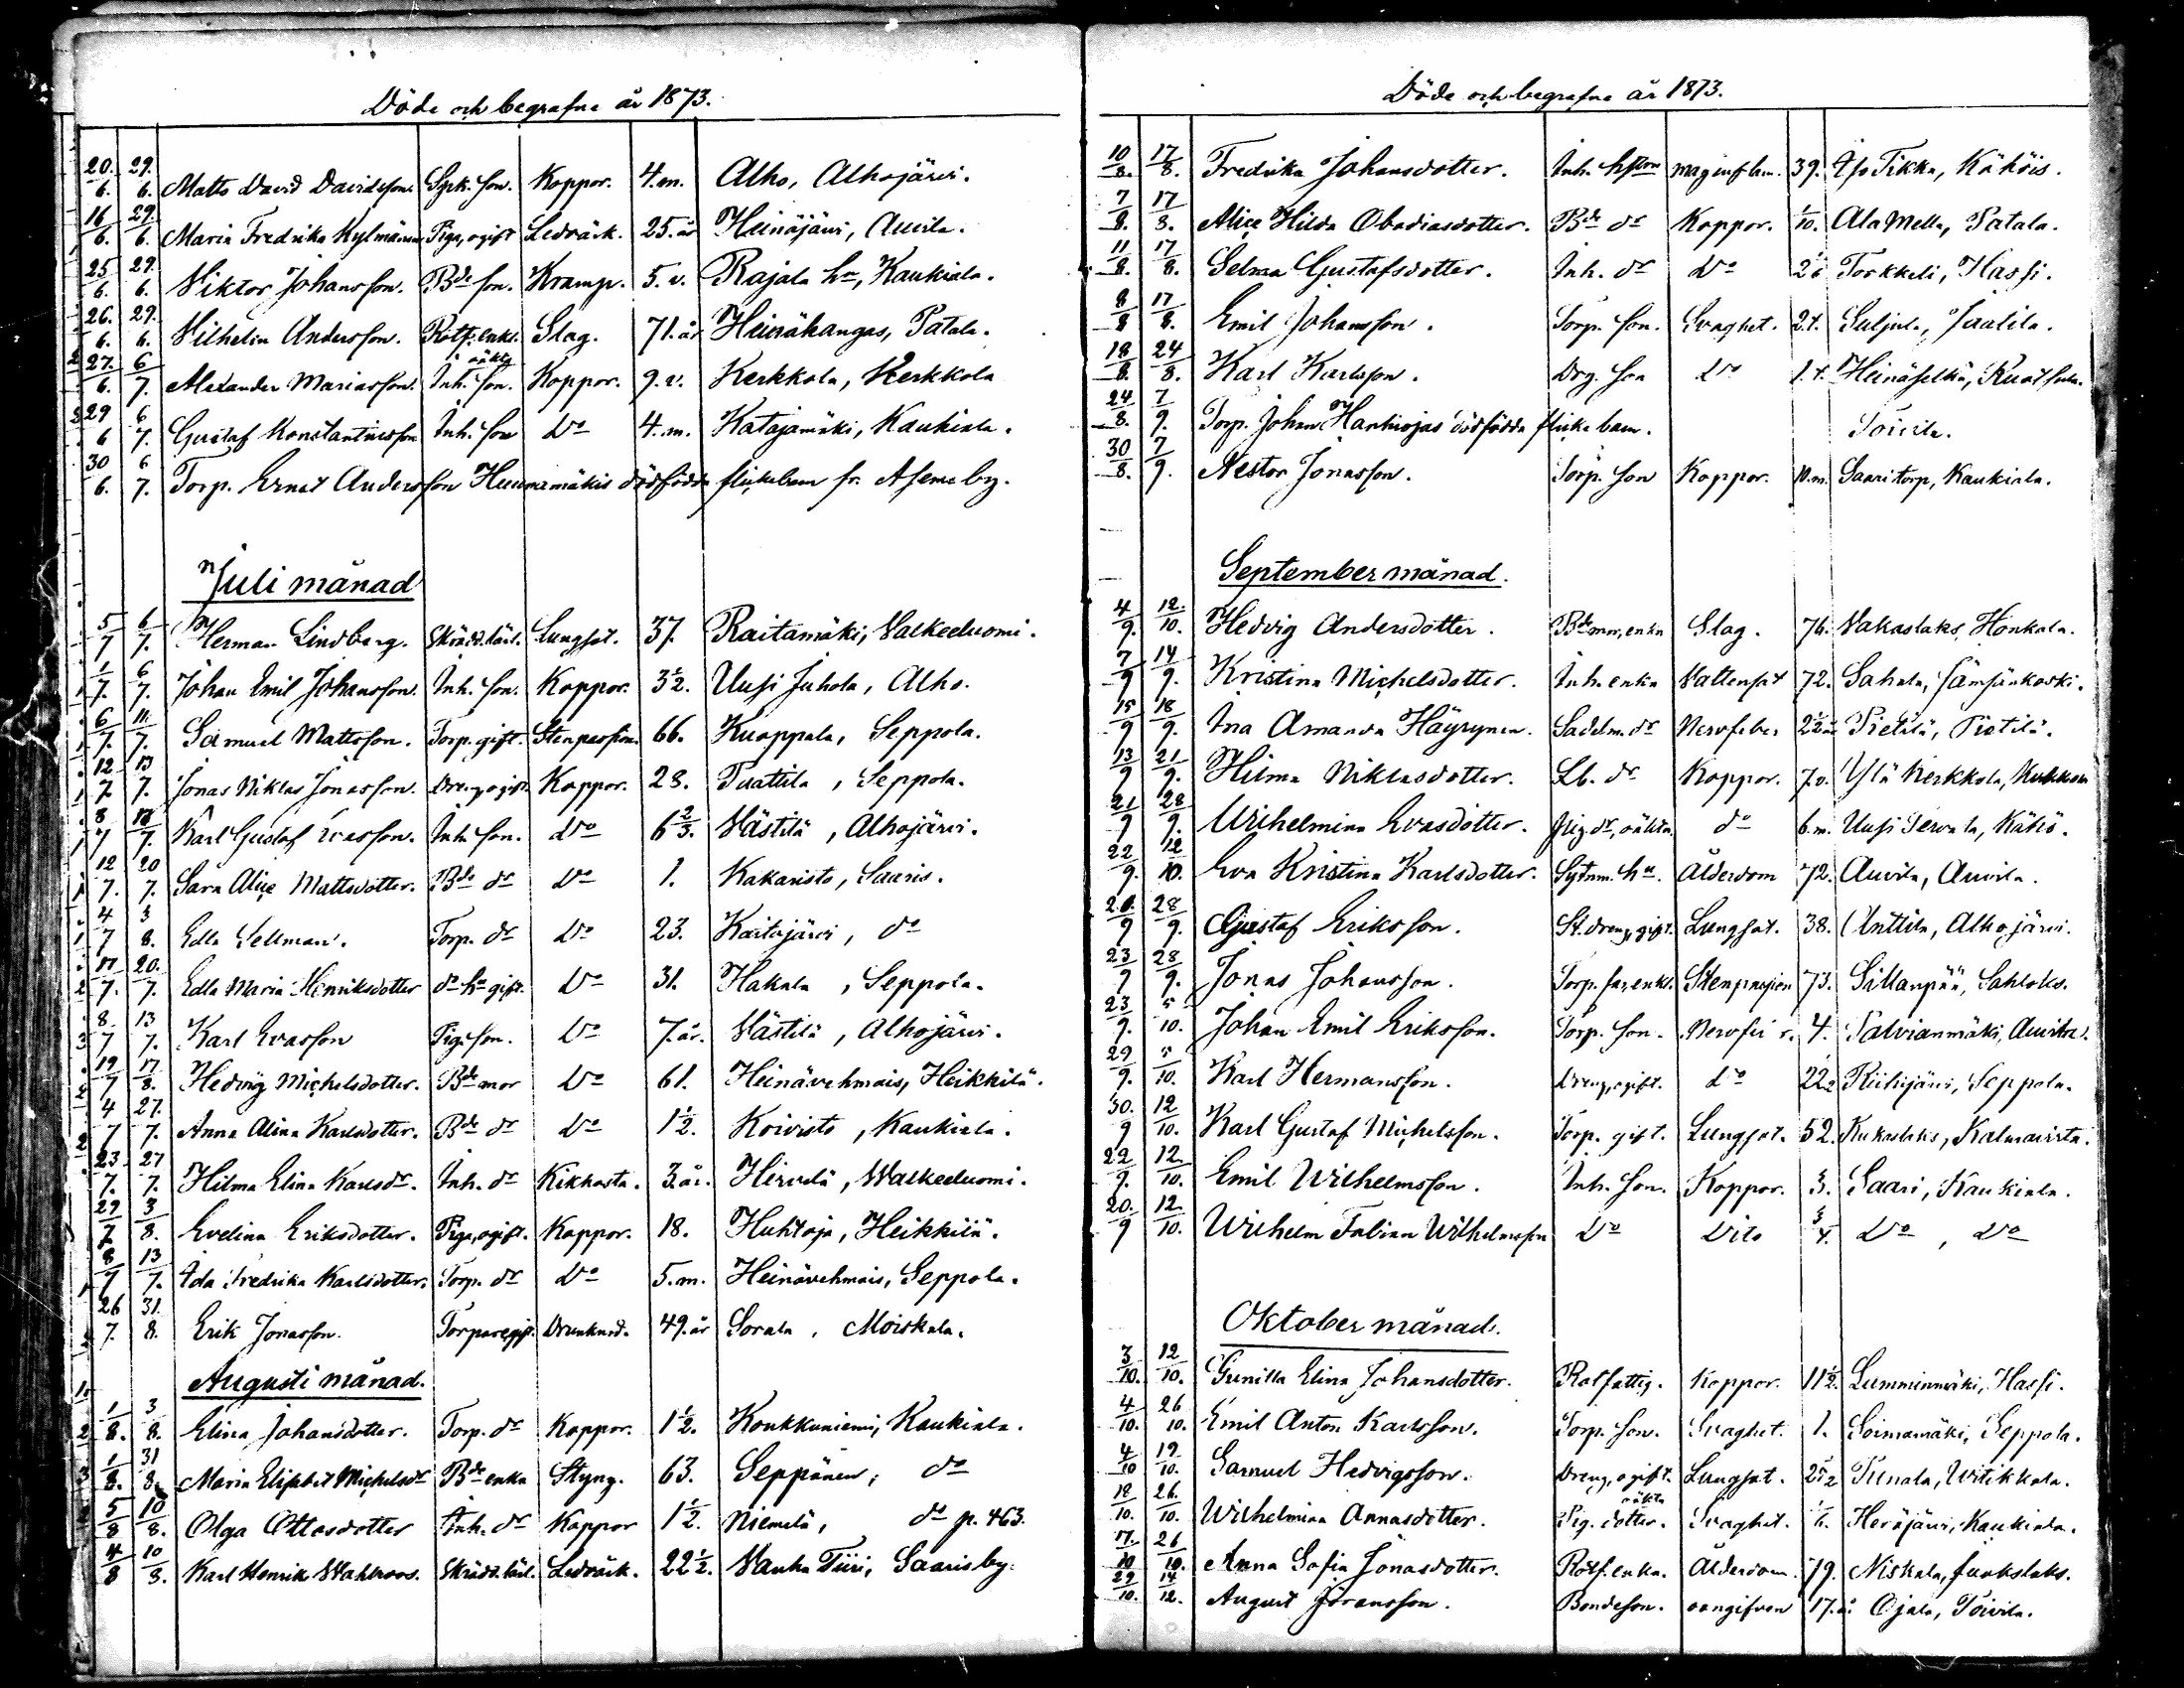 Döde och begrafne år 1873.
20./6. 29./6. Matts David Davidsson. Spk. son. Koppor. 4. m. Alho, Alhojärvi.
16/6. 29./6. Maria Fredrika Kylmänen Piga, ogift Ledvärk. 25. år Heinäjärvi, Auvila.
25/6. 29./6. Viktor Johansson. Bde son. Kramp. 5. v. Rajala hn, Kaukiala.
26./6. 29./6. Vilhelm Andersson. Rotf. enkl. Slag. 71. år Heinäkangas, Patala.
27./6. 6/7. Alexander Mariasson. Inh. oäkta son. Koppor. 9. v. Kerkkola, Kerkkola
29/6 6/7. Gustaf Konstantinsson Inh. son Do 4. m. Katajamäki, Kaukiala.
30/6. 6/7. Torp. Ernst Andersson dödfödda flickebarn fr. Aseme by.
Juli månad
5/7 6/7. Herman Lindberg. Skrädd. lärl. Lungsot. 37. Raitamäki, Valkeeluomi.
1/7. 6/7. Johan Emil Johansson. Inh. son. Koppor. 3 1/2. Uusi Juhola, Alho.
6/7. 11./7. Samuel Mattsson. Torp. gift. Stenpassion. 66. Kuoppala, Seppola.
12/7. 13/7. Jonas Niklas Jonasson. Dreng, ogift. Koppor. 28. Tuattila, Seppola.
8/7 13/7. Karl Gustaf Evasson. Inh. son. Do 6 2/3. Västilä, Alhojärvi.
12/7. 20/7. Sara Alice Mattsdotter. Bde dr Do 1. Kakaristo, Saaris.
4/7 3/8. Edla Sellman. Torp. dr Do 23. Kaitajärvi, do
17/7. 20./7. Edla Maria Henriksdotter do hu gift. Do 31. Hakala, Seppola.
8./7 13/7. Karl Evasson Pig. son. Do 7. år. Västilä, Alhojärvi.
19/7 17/8. Hedvig Michelsdotter. Bde mor Do 61. Heinävehmais, Heikkilä.
4/7 27./7. Anna Alina Karlsdotter. Bde dr Do 1 1/2. Koivisto, Kaukiala.
23/7. 27/7. Hilma Elina Karlsdr. Inh. dr Kikhosta. 3. år. Hirvelä, Walkeeluomi.
29/7 3/8. Evelina Eriksdotter. Piga, ogift. Koppor. 18. Huhtoja, Heikkilä.
8/7 13/7. Ida Fredrika Karlsdotter. Torp. dr Do 5. m. Heinävehmais, Seppola.
26/7. 31./8. Erik Jonasson. Torpare gift. Drunknad. 49. år Sorala, Moiskala.
Augusti månad.
1/8. 3/8. Elina Johansdotter. Torp. dr Koppor. 1 1/2. Koukkuniemi, Kaukiala.
1/8. 31/8. Maria Elisabet Michelsdr Bde enka Styng. 63. Seppänen, do
5/8 10/8. Olga Ottosdotter Inh. dr Koppor 1 1/2. Niemelä, do p. 463.
4/8 10/8. Karl Henrik Wahlroos. Skrädd. lärl. Ledvärk. 22 1/2. Vanha Tiiri, Saaris by.
Döde och begrafne år 1873.
10/8. 17/8. Fredrika Johansdotter. Inh. hustru maginflam. 39. Iso Tikka, Kähöis.
7/8. 17/8. Alice Hilda Obadiasdotter. Bde dr Koppor. 1/10. Ala Mella, Patala.
11/8. 17/8. Selma Gustafsdotter. Inh. dr Do Torkkeli, Hassi.
8/8 17/8. Emil Johansson. Torp. son. Svaghet. 2. t. Suljula, Jaatila.
18/8. 24/8. Karl Karlsson. Drg. son Do 1. t. Heinäselkä,
24/8. 7/9. Torp. Johan Hanhiojas dödfödda flicke barn. Toivila.
30/8. 7/9. Nestor Jonasson. Torp. son Koppor. 10. m. Saari torp, Kaukiala.
September månad.
4/9. 12./10. Hedvig Andersdotter. Bdemn, enka Slag. 76. Vakaslaks, Honkala.
7/9 14/9. Kristina Michelsdotter. Inh. enka Vattensot 72. Sahala, Jämsänkoski.
15/9 18/9. Ina Amanda Häyrynen. Sadelm. dr Nervfeber 2 1/2 Pietilä, Pietilä.
13/9 21/9. Hilma Niklasdotter. Lb. dr Koppor. 7. v. Ylä Kerkkola, Kerkkola
21/9 28/9. Wilhelmina Evasdotter. Pig. dr, oäkta do 6. m. Uusi Tervala, Kähö.
22/9. 12/10. Eva Kristina Karlsdotter. Sytnm. hu. Ålderdom 72. Auvila, Auvila.
20./9 28/9. Gustaf Eriksson. St. dreng, gift. Lungsot. 38. Anttila, Alhojärvi.
23/9 28/9. Jonas Johansson. Torp. far, enkl. Stenpassion 73. Sillanpää, Sahloks.
23/9. 5/10. Johan Emil Eriksson. Torp. son. Nervfeber. 4. Palvianmäki, Auvila.
29/9. 5/10. Karl Hermansson. Dreng, ogift. Do 22 1/2 Riihijärvi, Seppola.
30./9 12/10. Karl Gustaf Michelsson. Torp. gift. Lungsot. 52. Kukaslaks, Kalmavirta.
22/9. 12./10. Emil Wilhelmsson. Inh. son. Koppor. 3. Saari, Kaukiala.
20./9 12./10. Wilhelm Fabian Wilhelmsson Do Dito 3/4. Do, Do
Oktober månad.
3/10. 12/10. Gunilla Elina Johansdotter. Rotfattig. Koppor. 11 1/2. Lumminmäki, Hassi.
4/10. 26/10. Emil Anton Karlsson. Torp. son. Svaghet. 1. Soimamäki, Seppola.
4/10 19/10. Samuel Hedvigsson. Dreng, ogift. Lungsot. 25 1/2 Tunala, Witikkala.
18/10. 26./10. Wilhelmina Annasdotter. Pig. oäkta dotter. Svaghet. Heräjärvi, Kaukiala.
17/10 26/10. Anna Sofia Jonasdotter. Rotf. enka. Ålderdom. 79. Niskala, Juokslaks.
29/10. 14/12. August Göransson. Bondeson. oangifven 17. å. Ojala, Toivila.